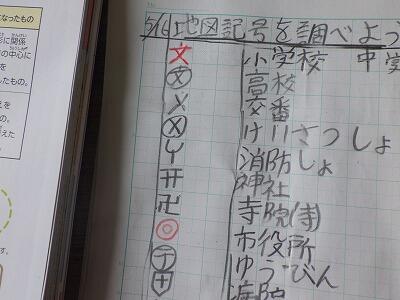 なったもの
形に関係
の中心に
したもの。
を
の。
えを
の。
えた
す。
5/16 地図記号を調べよう
文 小学校 中学
文 高校
X 交番
X けいさつしょ
Y 消防しょ
神社
卍 寺院(寺)
◎ 市役所
〒 ゆうびん
病院